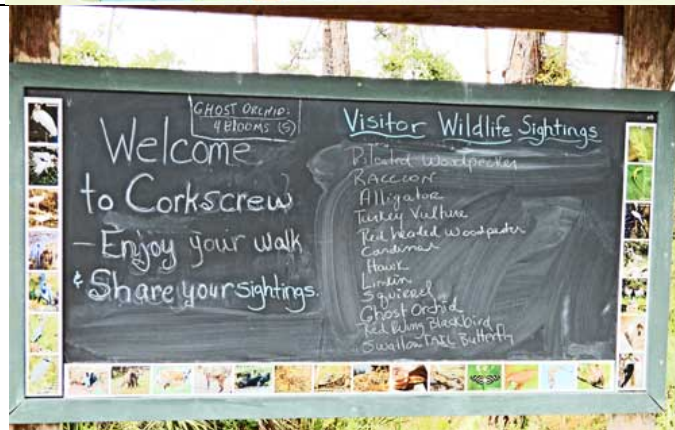 GHOST ORCHID:
4 BLOOMS (5)
Welcome
to Corkscrew
- Enjoy your walk
& Share your sightings.
Visitor Wildlife Sightings
Pileated Woodpecker
RACCOON
Alligator
Turkey Vulture
Red headed woodpecker
Cardinal
Hawk
Limkin
Squirrel
Ghost Orchid
Red Wing Blackbird
Swallow Tail Butterfly